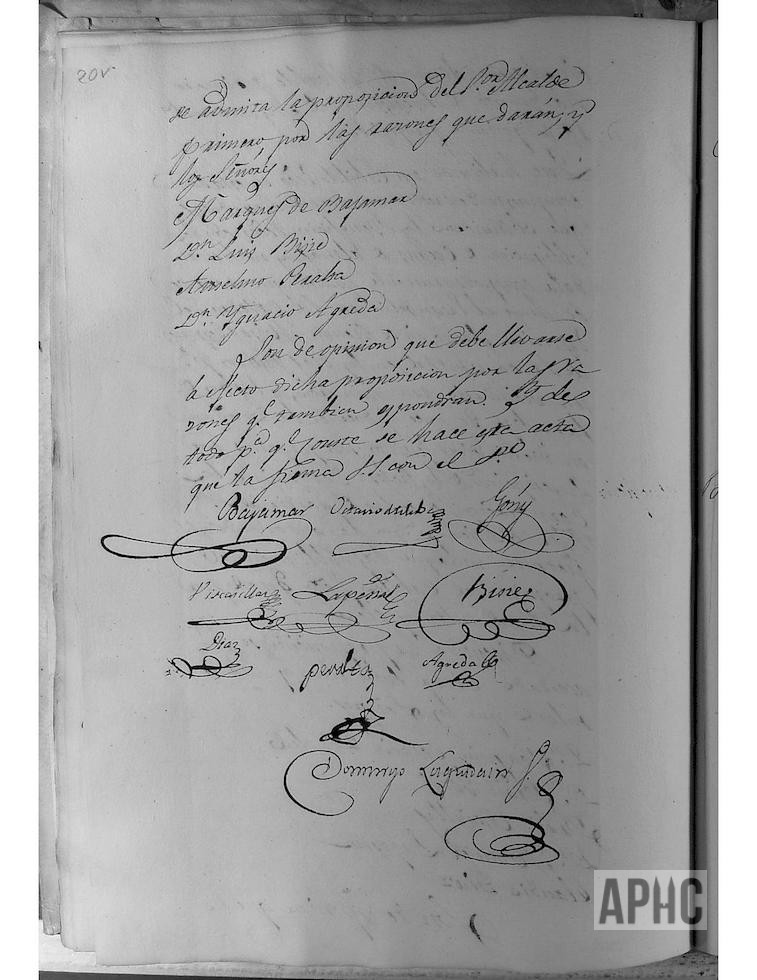 20v
se admita la proposicion del S.or Alcalde
primero, por las razones que darán, y
los Señores
Marques de Bajamar
D.n Luis Bisie
Anselmo Peralta
D.n Ygnacio Agreda
Son de opinion que debe llevarse
a efecto dicha proposicion por las ra
zones q.e tambien espondran. Y de
todo p.a q.e conste se hace esta acta
que la firma S.S. con el
Bajamar
Góny
Lapeña
Bisie
Diaz
Peralta
Agreda
Domingo
APHC